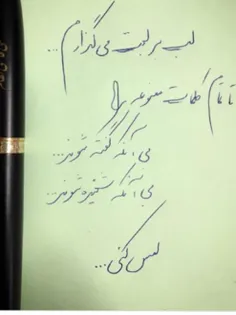 لب بر لبت می گذارم...
تا تمام کلمات ممنوعه را
بی آنکه گفته شوند...
بی آنکه شنیده شوند...
لمس کنی...